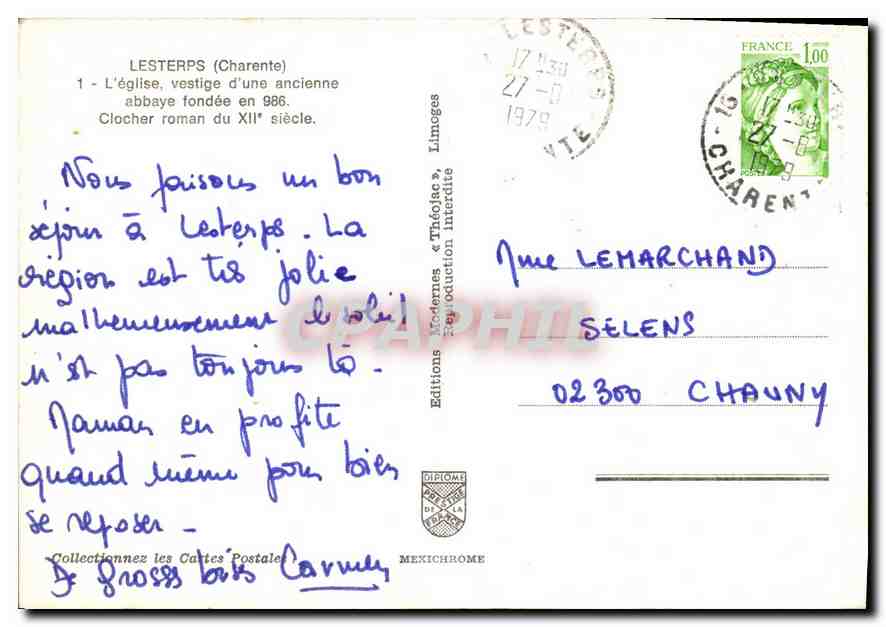 LESTERPS (Charente)
1 - L'église, vestige d'une ancienne
abbaye fondée en 986.
Clocher roman du XIIᵉ siècle.
Nous faisons un bon
séjour à Lesterps. La
région est très jolie
malheureusement le soleil
n'est pas toujours là.
Maman en profite
quand même pour bien
se reposer -
De grosses bises Carmen
Collectionnez les Cartes Postales
MEXICHROME
Editions Modernes « Théojac », Limoges
Reproduction interdite
DIPLOME
PRESTIGE
DE LA
FRANCE
CPAPHIL
LESTERPS
17 H30
27 -8
1979
NTE
FRANCE 1,00
POSTES
16
17 H30
27 -8
1979
CHARENT
Mme LEMARCHAND
SELENS
02300 CHAUNY